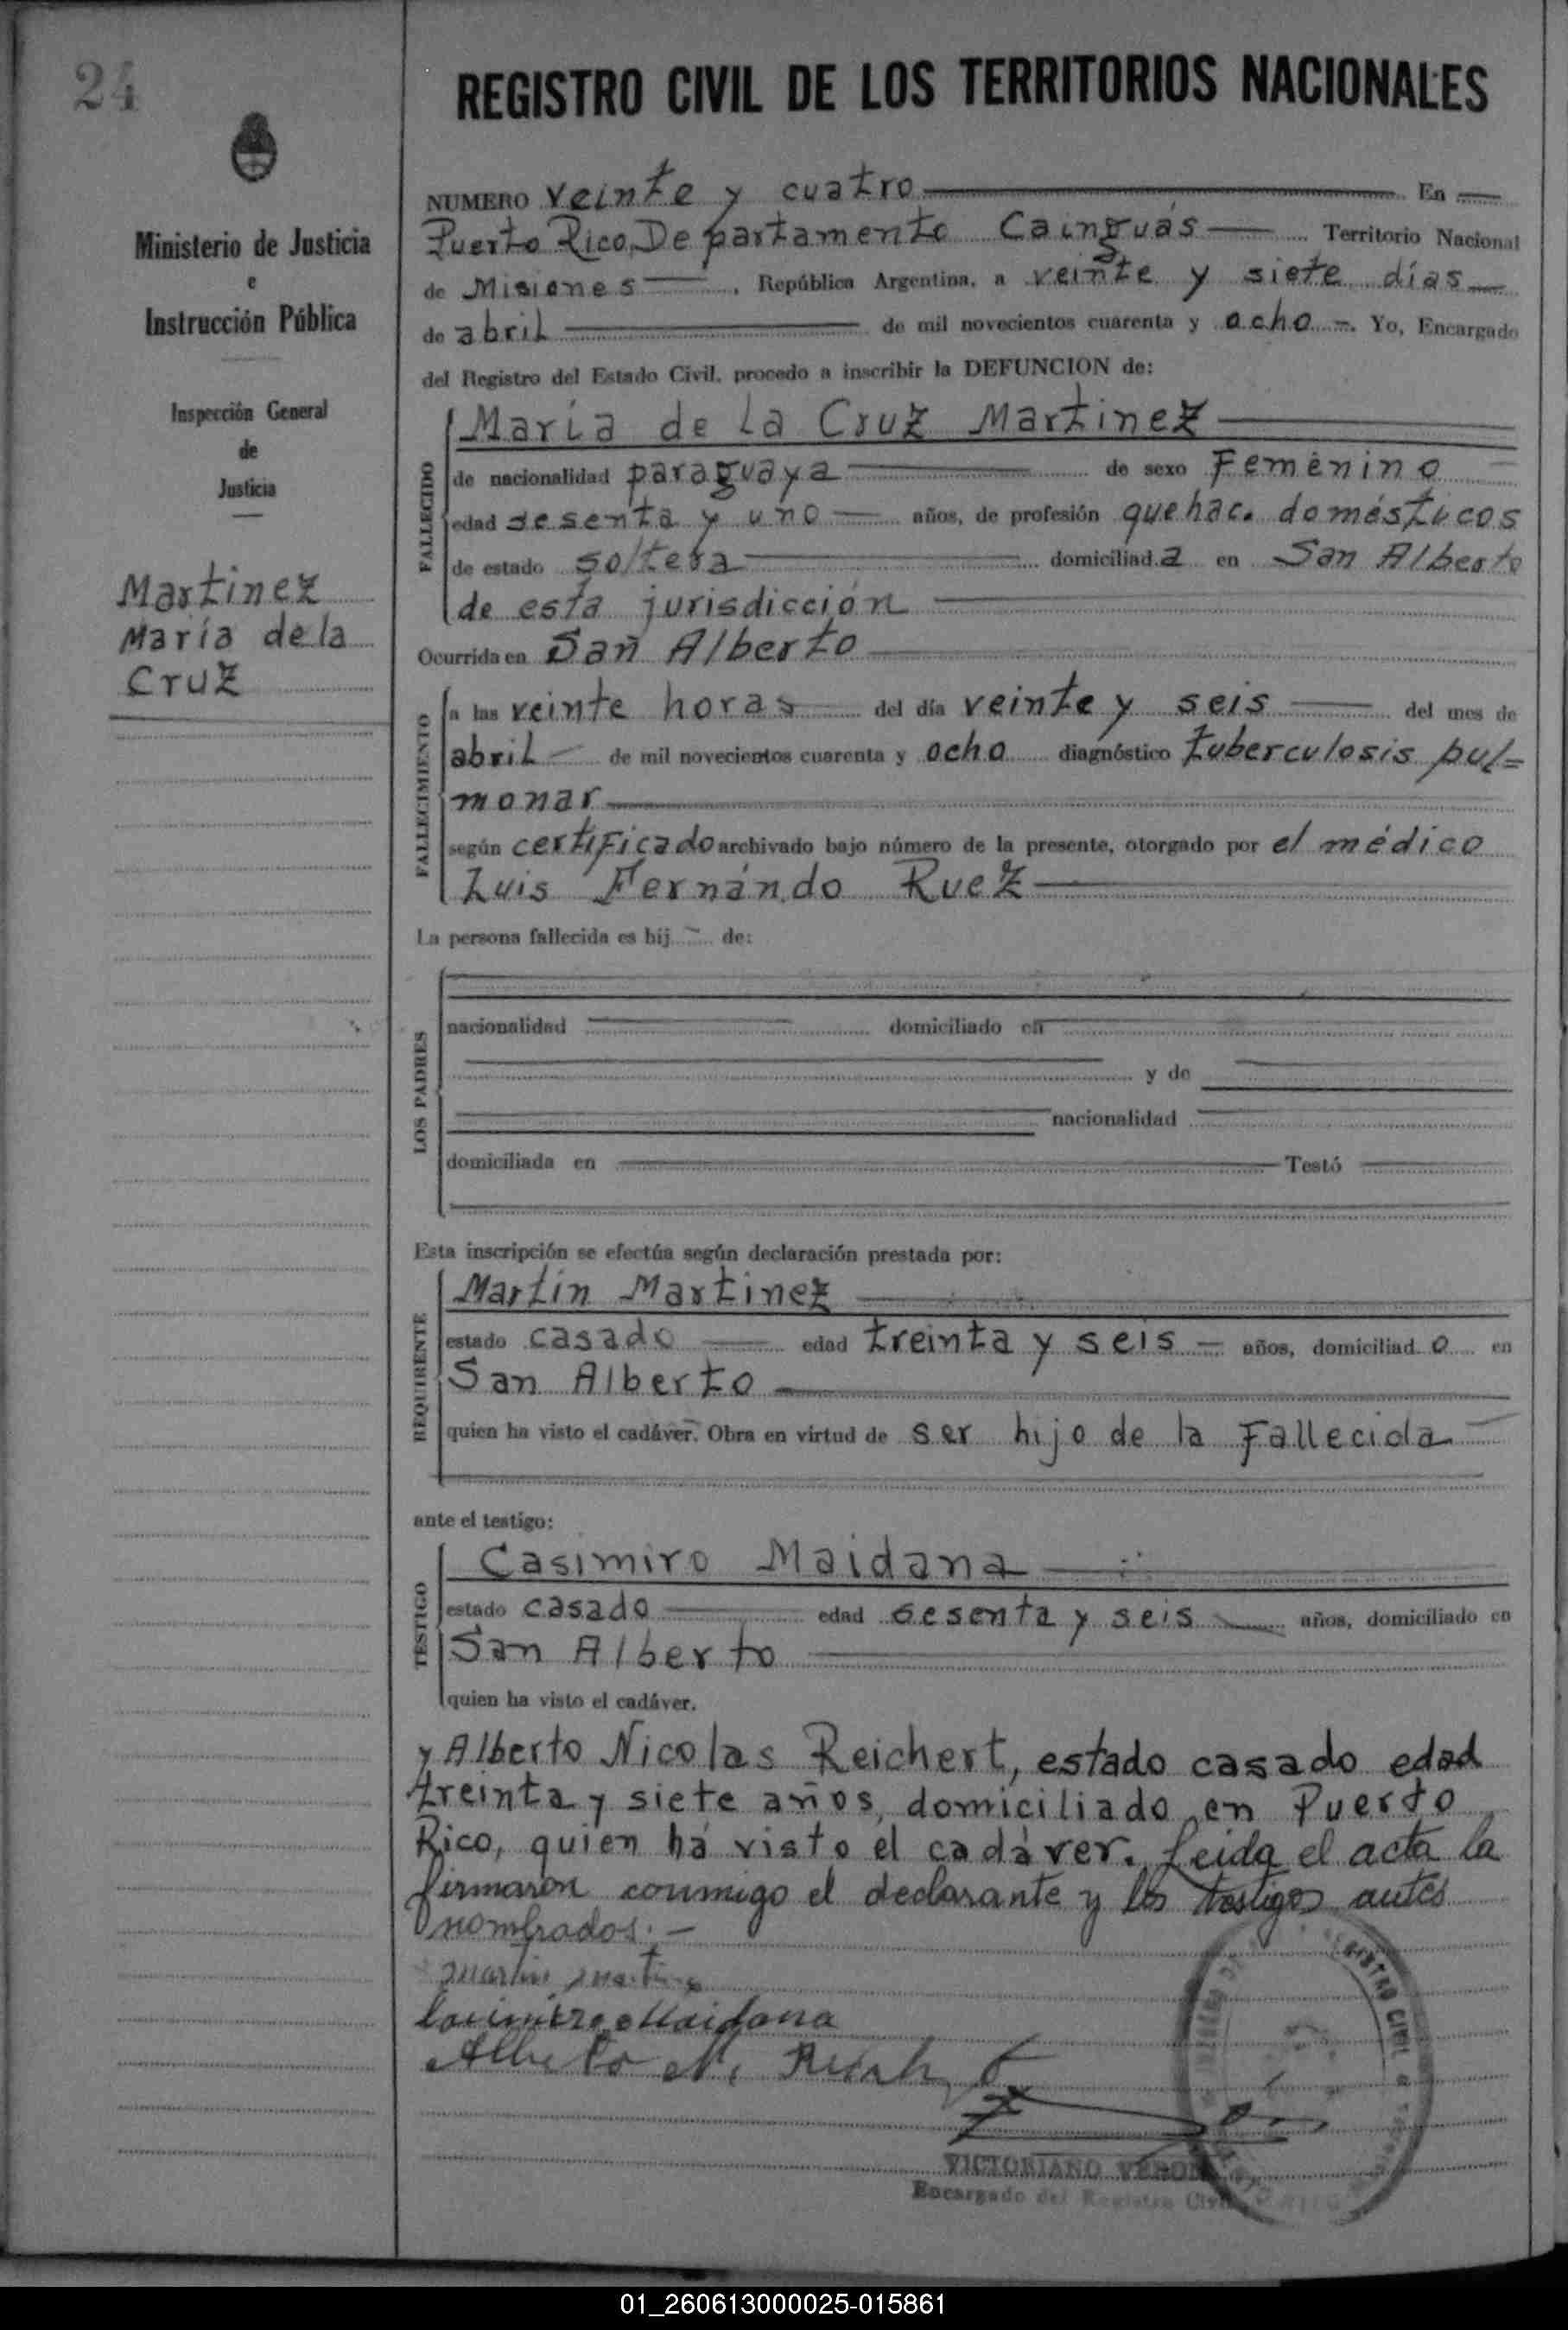 24
REGISTRO CIVIL DE LOS TERRITORIOS NACIONALES
Ministerio de Justicia
e
Instrucción Pública
Inspección General
de
Justicia
Martinez
María de la
Cruz
NUMERO veinte y cuatro En
Puerto Rico, Departamento Cainguás Territorio Nacional
de Misiones , República Argentina, a veinte y siete días
de abril de mil novecientos cuarenta y ocho -. Yo, Encargado
del Registro del Estado Civil, procedo a inscribir la DEFUNCION de:
FALLECIDO
María de la Cruz Martinez
de nacionalidad paraguaya de sexo Femenino
edad sesenta y uno años, de profesión quehac. domésticos
de estado soltera domiciliad a en San Alberto
de esta jurisdicción
Ocurrida en San Alberto
FALLECIMIENTO
a las veinte horas del día veinte y seis del mes de
abril de mil novecientos cuarenta y ocho diagnóstico tuberculosis pul=
monar
según certificado archivado bajo número de la presente, otorgado por el médico
Luis Fernándo Ruez
La persona fallecida es hij de:
LOS PADRES
nacionalidad domiciliado en
y de
nacionalidad
domiciliada en Testó
Esta inscripción se efectúa según declaración prestada por:
REQUIRENTE
Martín Martinez
estado casado edad treinta y seis años, domiciliad o en
San Alberto
quien ha visto el cadáver. Obra en virtud de ser hijo de la Fallecida
ante el testigo:
TESTIGO
Casimiro Maidana
estado casado edad sesenta y seis años, domiciliado en
San Alberto
quien ha visto el cadáver.
y Alberto Nicolas Reichert, estado casado edad
treinta y siete años, domiciliado en Puerto
Rico, quien há visto el cadáver. Leida el acta la
firmaron conmigo el declarante y los testigos antes
nombrados. -
Martin Martinez
Casimiro Maidana
Alberto N. Reichert
VICTORIANO VERON
Encargado del Registro Civil
REGISTRO CIVIL
01_260613000025-015861